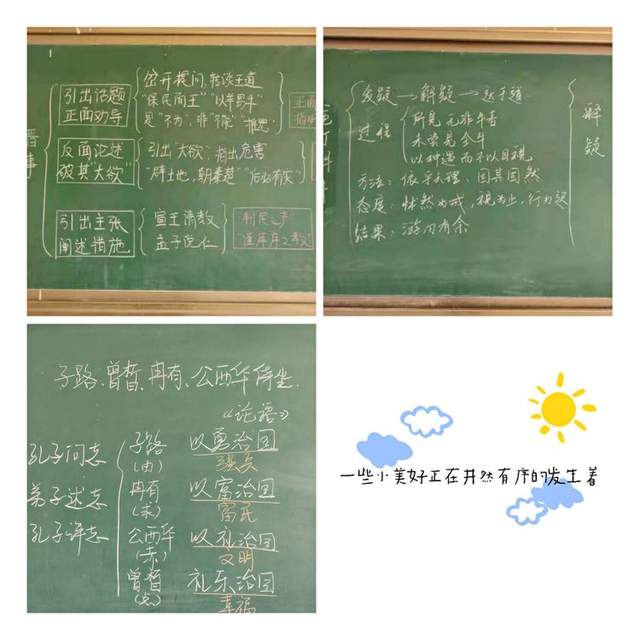 引出话题
正面劝导
岔开提问,转谈王道
"保民而王""以羊易牛"
是"不为",非"不能""推恩"
正面
反面论述
破其"大欲"
引出"大欲",指出危害
"辟土地,朝秦楚""后必有灾"
引出主张
阐述措施
宣王请教
孟子说仁
制民之产
"谨庠序之教"
发疑→解疑→达于道
过程
所见无非牛者
未尝见全牛
以神遇而不以目视
方法:依乎天理,因其固然
态度:怵然为戒,视为止,行为迟
结果:游刃有余
解疑
子路、曾皙、冉有、公西华侍坐
《论语》
孔子问志
弟子述志
孔子评志
子路
(由)
以勇治国
强兵
冉有
(求)
以富治国
富民
公西华
(赤)
以礼治国
文明
曾皙
(点)
礼乐治国
幸福
一些小美好正在井然有序的发生着